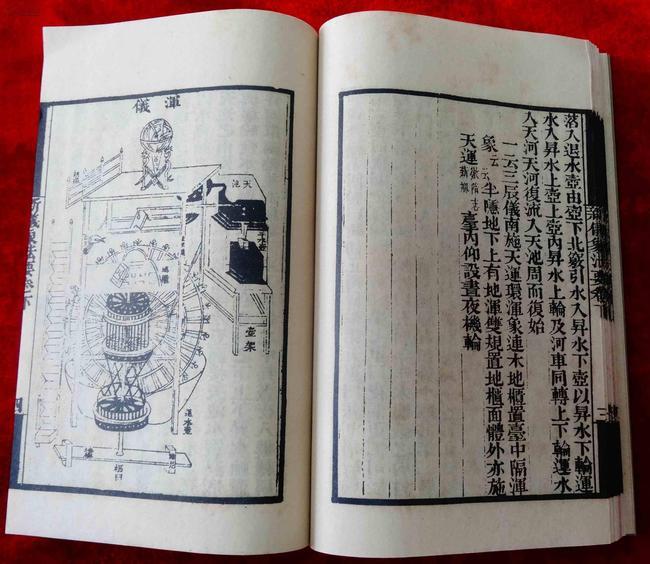 落入退水壺由壺下北竅引水入昇水下壺以昇水下輪運
水入昇水上壺上壺內昇水上輪及河車同轉上下輪運水
入天河天河復流入天池周而復始
一云三辰儀南施天運環渾象連木地櫃置臺中隔渾
象云云半隱地下上有地渾雙規置地櫃面體外亦施
天運臺內仰設晝夜機輪
新儀象法要卷下
三
渾儀
天池
壺架
退水壺
樞臼
新儀象法要卷下